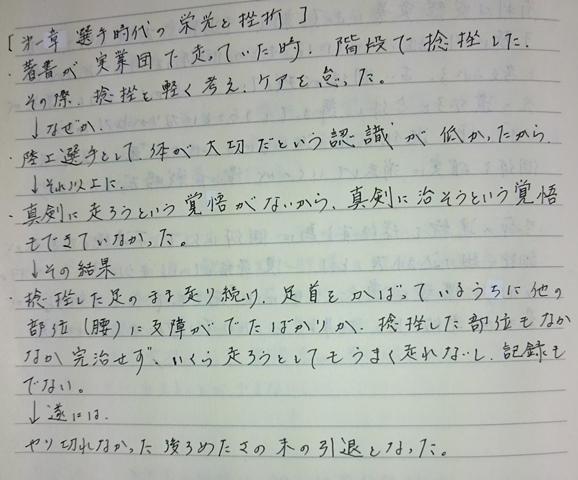 [第一章 選手時代の栄光と挫折]
・著書が実業団で走っていた時、階段で捻挫した。
その際、捻挫を軽く考え、ケアを怠った。
↓なぜか、
・陸上選手として体が大切だという認識が低かったから。
↓それ以上に、
・真剣に走ろうという覚悟がないから、真剣に治そうという覚悟
もできていなかった。
↓その結果
・捻挫した足のまま走り続け、足首をかばっているうちに他の
部位(腰)に支障がでたばかりか、捻挫した部位もなか
なか完治せず、いくら走ろうとしてもうまく走れないし、記録も
でない。
↓遂には、
やり切れなかった後ろめたさの末の引退となった。